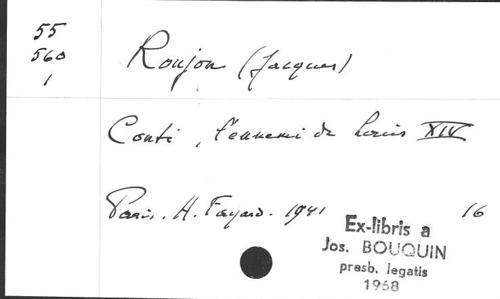 55
560
1
Roujon (Jacques)
Conti, l'ennemi de Louis XIV
Paris. H. Fayard. 1941 16
Ex-libris a
Jos. BOUQUIN
presb. legatis
1968